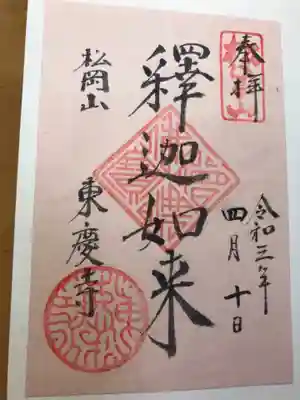 奉拝
令和三年
四月十日
釋迦如来
松岡山
東慶寺